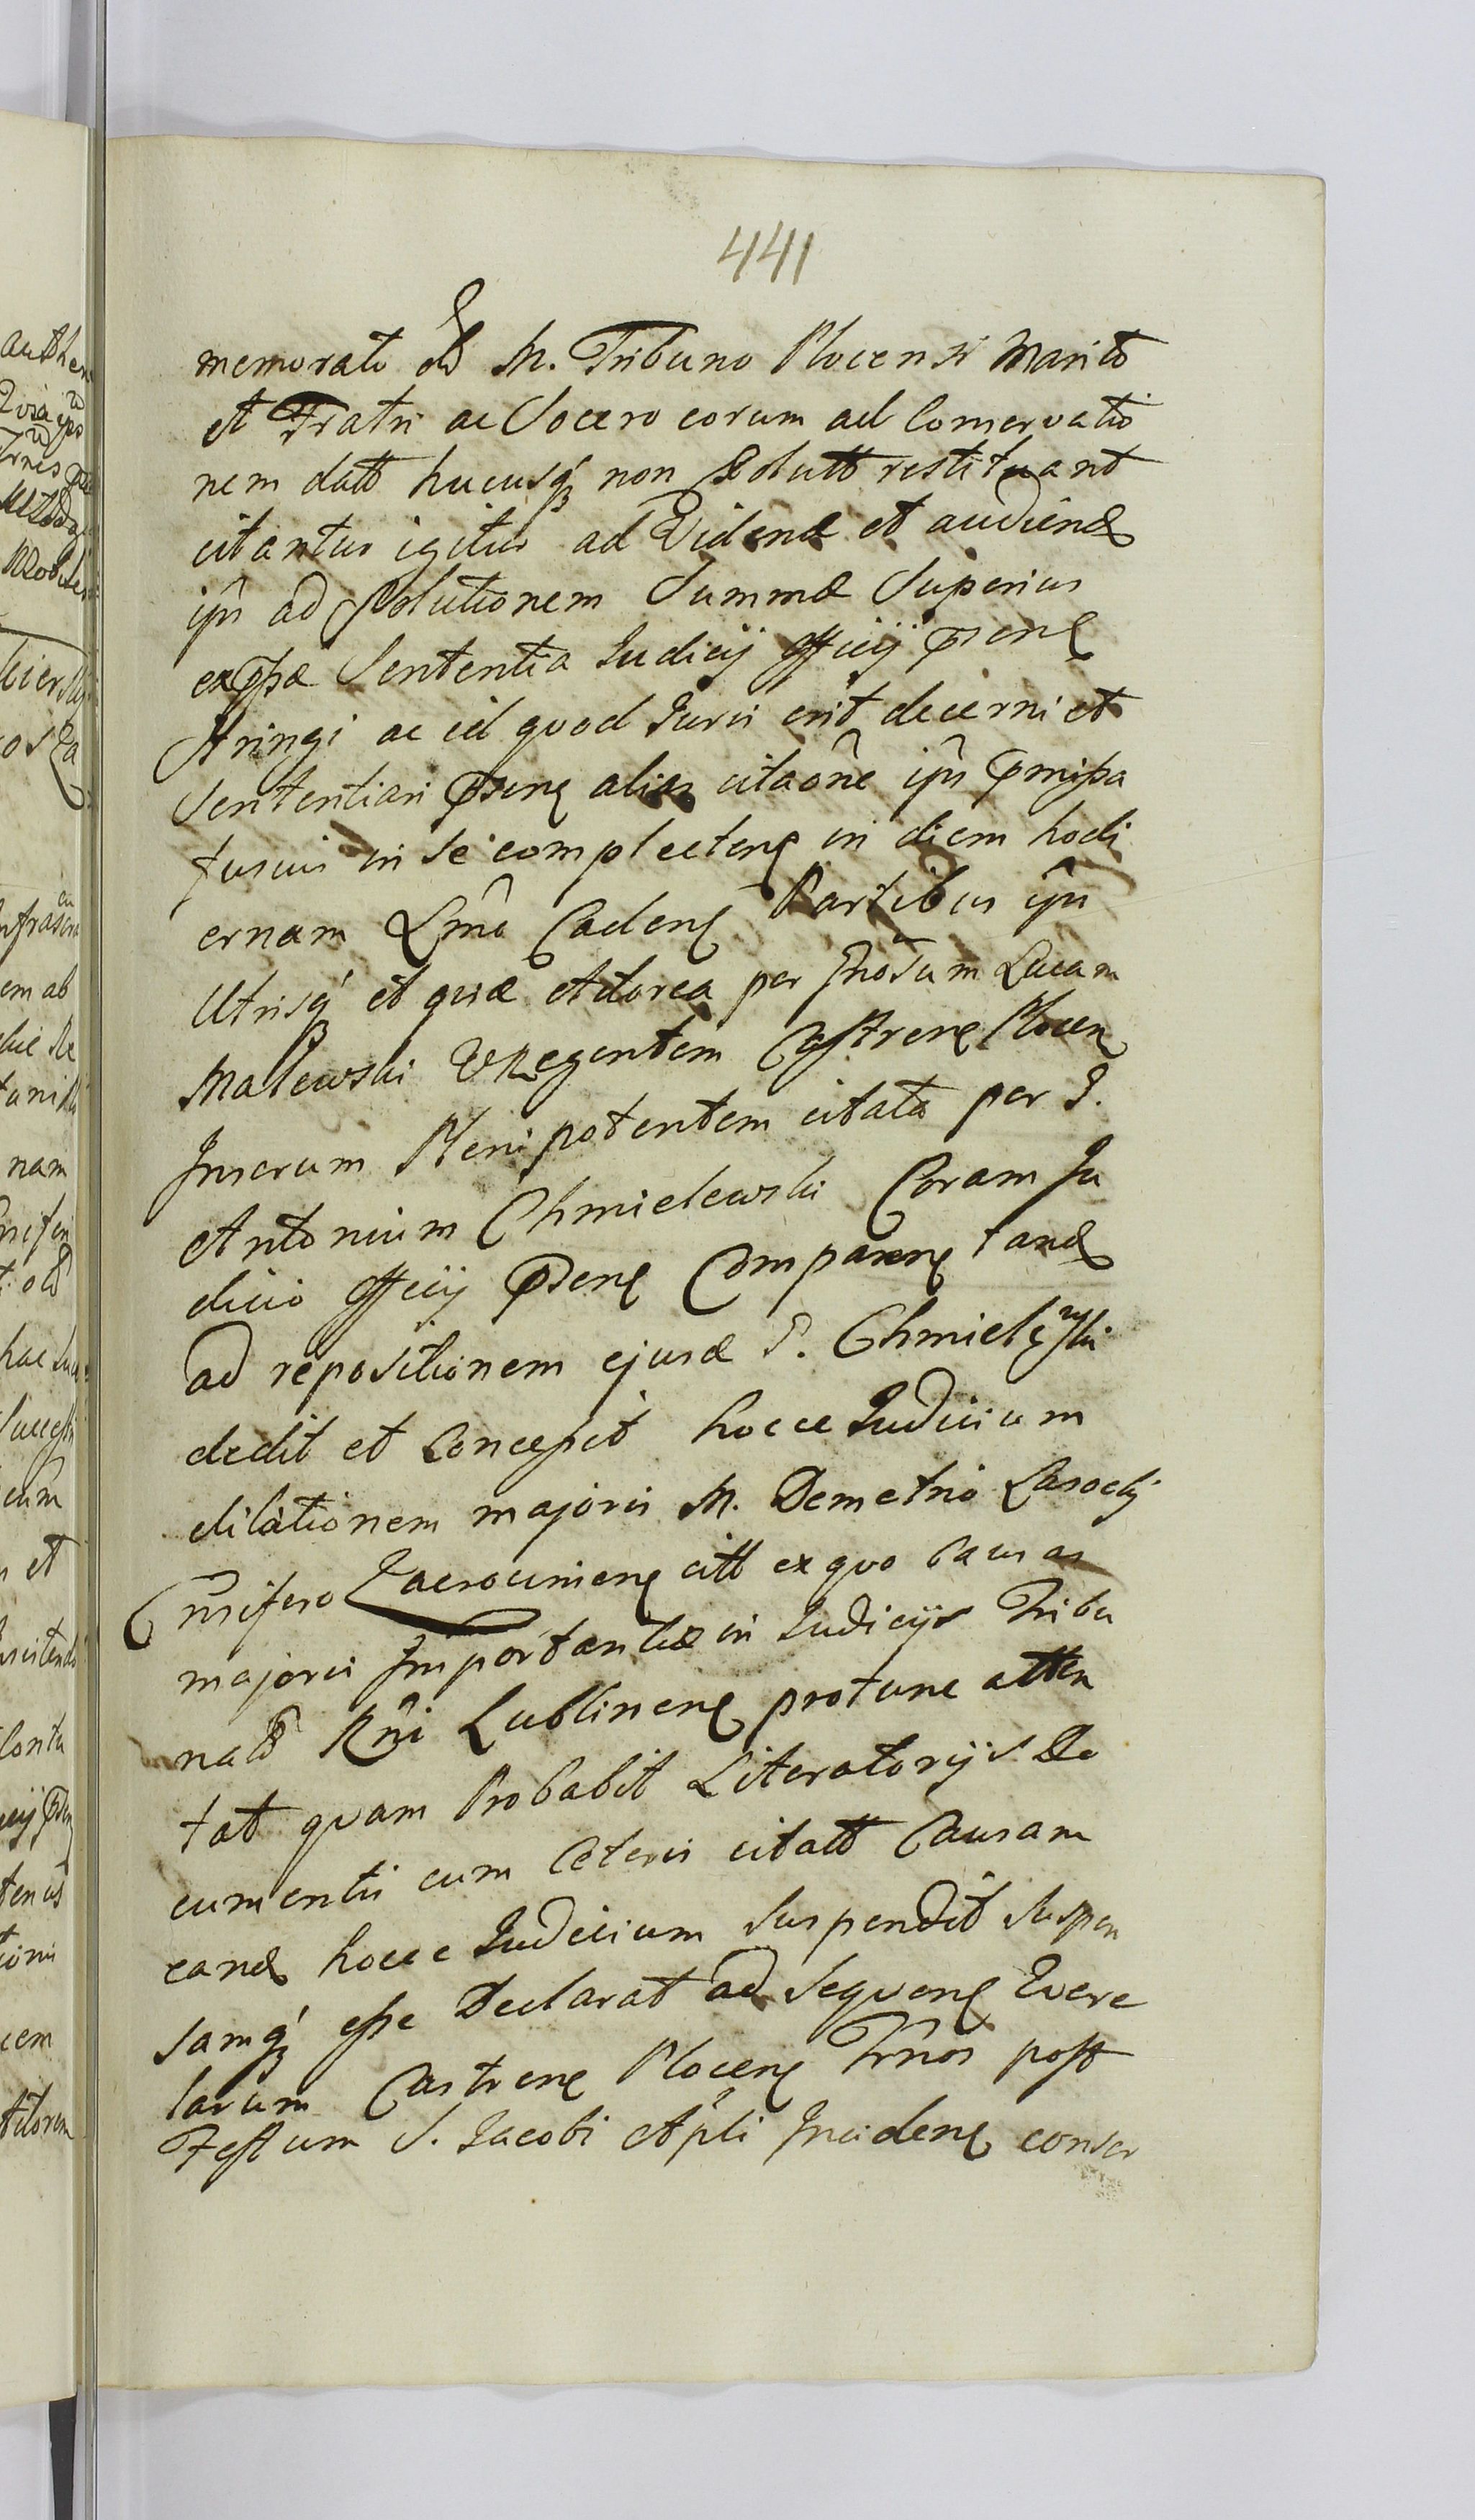 441
memorato olt M. Tribuno Plocensi Marito
et Fratri ac Socero eorum ad Conservatio
nem datt hucusq́ non Solutt restituant
citantur igitur ad Vidend et audiend
ipŝ ad Solutionem Summæ Superius
expssæ Sententia Judicij Officij pserię
Stringi ac id quod Juris erit decerni et
Sententiari psenę alias citaôñe ipŝ prmissa
fusius in se complectenę in diem hodi
ernam Lmô Cadenę Partibus ipŝ
Utrisq́ et quidẽ Actorea per Gnosum Lucam
Malewski VRegentem Castrenę Plocen
Juserum Plenipotentem citata per G.
Antonium Chmielewski Coram Ju
dicio Officij psenę Comparenę tand
ad repositionem ejusd G. Chmielewski
dedit et Concessit hocce Judicium
dilationem majoris M. Demetrio Lasocki
Ensifero Zacrocimenę citt ex quo Causas
majoris Importantiæ in Judicijs Tribu
nalŝ Rñi Lublinenę protunc atten
tat quam Probabit Literatorijs Do
cumentis cum Ceteris citatt Causam
eand hocce Judicium Suspendit Suspen
samq́ esse Declarat ad Sequenę Quere
larum Castrenę Plocenę Trnos post
Festum S. Jacobi Apli Incidenę conser